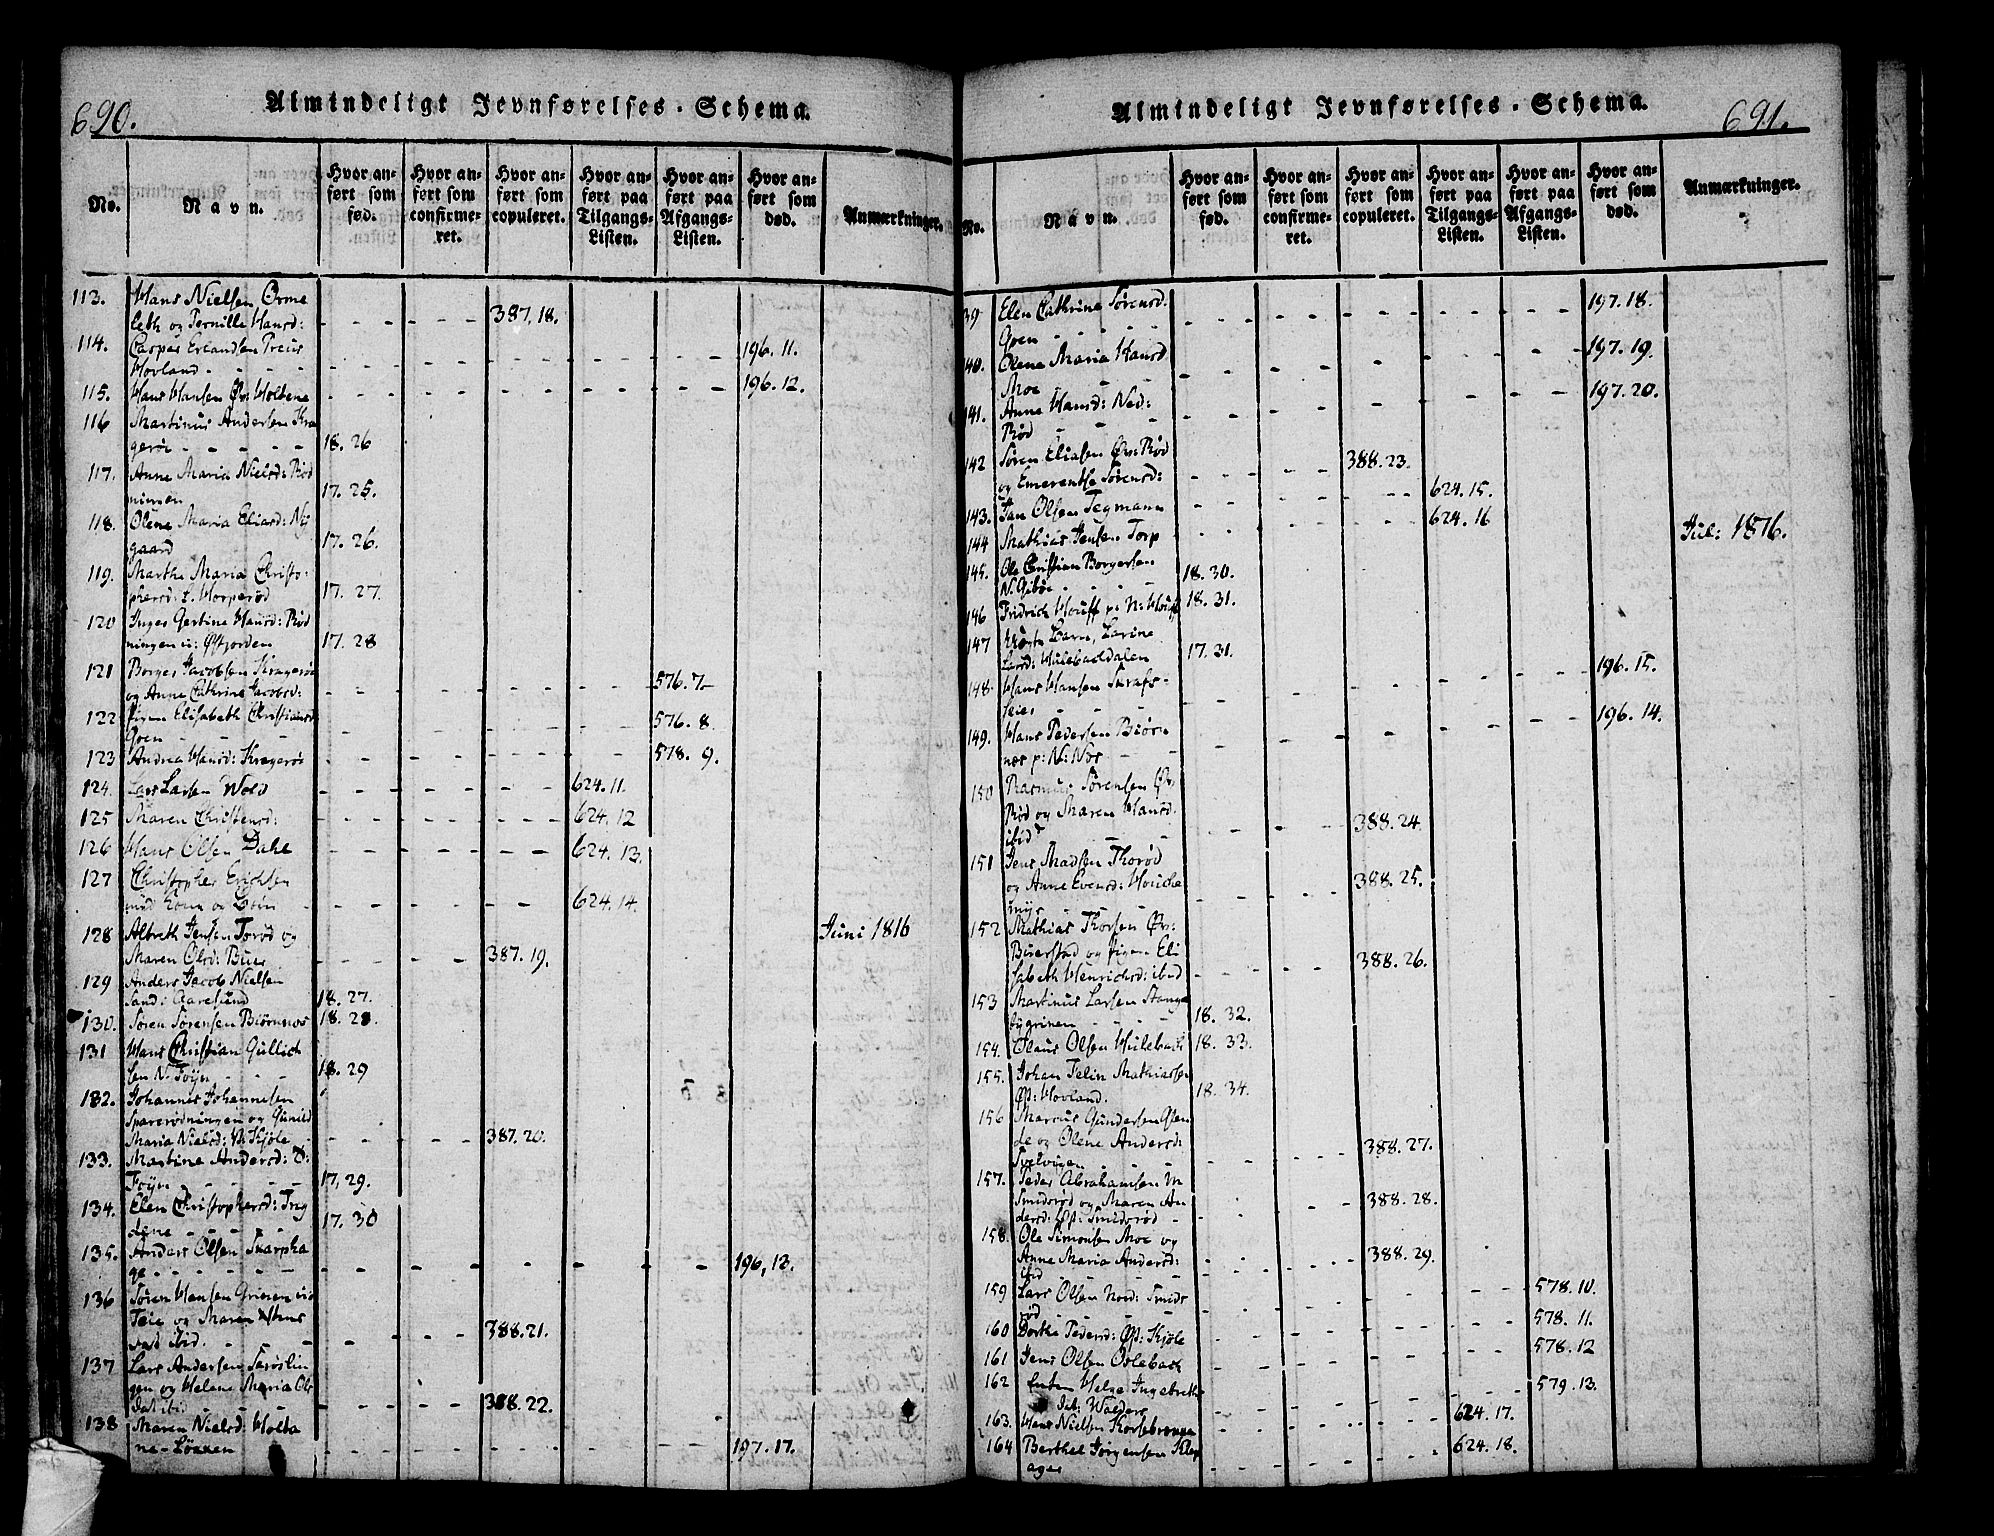 690.
Almindeligt Jevnførelses-Schema.
No.
Navn.
Hvor anført som fød.
Hvor anført som confirmeret.
Hvor anført som copuleret.
Hvor anført paa Tilgangs-Listen.
Hvor anført paa Afgangs-Listen.
Hvor anført som død.
Anmærkninger.
113. Hans Nielsen Orme
leth og Pernille Hansd: 387.18.
114. Casper Erlandsen Preus
Hovland 196.11.
115. Hans Hansen Øv: Holtene 196.12.
116 Martinus Andersen Kra
gerøe 18.26
117. Anne Maria Nielsd: Rød
ningen 17.25.
118. Olene Maria Eliasd: Ny
gaard 17.26.
119. Marthe Maria Christo-
phersd: L. Horperød 17.27.
120 Inger Gertine Hansd: Rød
ningen i: Østjorden 17.28
121 Borger Jacobsen Kragerøe
og Anne Cathrine Jacobsd: 576.7
122 pigen Elisabeth Christiansd
Goen 576.8
123 Andrea Hansd: Kragerøe 578.9.
124. Lars Larsen Wold 624.11.
125 Maren Christensd: 624.12
126 Hans Olsen Dahl 624.13.
127 Christopher Erichsen
med Kone og Børn 624.14.
Juni 1816
128 Albreth Jensen Torød og
Maren Olsd: Buer 387.19.
129 Anders Jacob Nielsen
Sand: Aarøsund 18.27.
130. Søren Sørensen Biørnnes 18.28
131 Hans Christian Gullich
sen N. Føyn 18.29
132. Johannes Johannesen
Sparerødningen og Gunild
Maria Nielsd: N: Kjøle 387.20.
133. Martine Andersd: D:
Føyn 17,29.
134. Elen Christophersd: Tryg
dene 17.30
135. Anders Olsen Skarpha
ge 196,13.
136 Søren Hansen Grinen
Teie og Maren
ibid. 388.21.
137 Lars Andersen
gen og Helene Maria Ols
dat ibid 388.22.
138 Maren Nielsd: Holta
ne-Løkken 197.17.
691.
Almindeligt Jevnførelses-Schema.
No.
Navn.
Hvor anført som fød.
Hvor anført som confirmeret.
Hvor anført som copuleret.
Hvor anført paa Tilgangs-Listen.
Hvor anført paa Afgangs-Listen.
Hvor anført som død.
Anmærkninger.
39 Elen Cathrine Sørensd.
Goen 197.18.
140. Olene Maria Hansd
Moe 197.19.
141. Anne Hansd: Ned:
Rød 197.20.
142 Søren Eliasen Øv: Rød
og Emerentse Sørensd: 388.23.
143. Jan Olsen Tegmann 624.15.
144 Mathias Jensen Torp 624.16
Jul: 1816.
145. Ole Christian Borgersen
N. Gibøe 18.30.
146 Fridrich Houff p: N: Houff 18.31.
147 Barn, Larine
Larsd: Hulebackdalen 17.31.
148. Hans Hansen
teie 196.15.
149. Hans Pedersen Biørn
nes p: N: Nes 196.14.
150 Rasmus Sørensen Øv:
Rød og Maren Hansd.
ibid 388.24.
151 Jens Madsen Thorød
og Anne Evensd: Houche
myr 388.25.
152 Mathias Thorsen Øv:
Buerstad og pigen Eli
sabeth Henrichsd: ibid 388.26.
153 Martinus Larsen Stange
bygrinen 18.32.
154. Claus Olsen Huleback 18.33.
155. Johan Felin Mathiassen
Øst: Hovland. 18.34.
156 Marcus Gundersen Gien
de og Olene Andersd:
Svelvigen 388.27.
157. Peder Abrahamsen M
Smidsrød og Maren An
dersd: Øst: Smidsrød 388.28.
158 Ole Simonsen Moe og
Anne Maria Andersd:
ibid 388.29.
159 Lars Olsen Nord: Smids
rød 578.10.
160 Dorthe Pedersd: Øst: Kjøle 578.11.
161 Jens Olsen Osleback 578.12
162 Enken Helge Ingebreths
dat: Walders 579.13.
163. Hans Nielsen 624.17.
164 Berthel Jørgensen Klep
ager 624.18.